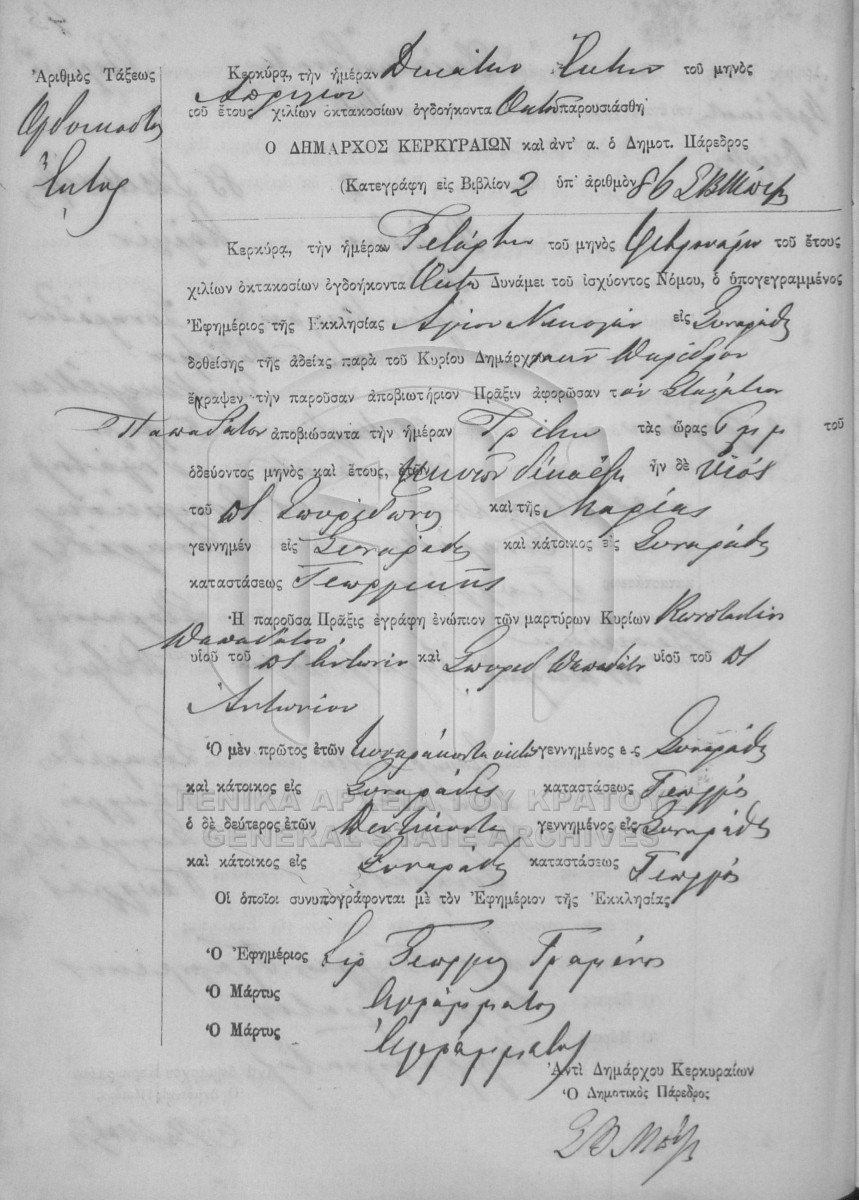 Ἀριθμὸς Τάξεως
Ὀγδοηκοστὸς
Ἕκτος
Κερκύρᾳ, τὴν ἡμέραν Δεκάτην Ἕκτην τοῦ μηνὸς
Ἀπριλίου
τοῦ ἔτους χιλίων ὀκτακοσίων ὀγδοήκοντα Ὀκτὼ παρουσιάσθη
Ο ΔΗΜΑΡΧΟΣ ΚΕΡΚΥΡΑΙΩΝ καὶ ἀντ' α. ὁ Δημοτ. Πάρεδρος
(Κατεγράφη εἰς Βιβλίον 2 ὑπ' ἀριθμὸν 86
Κερκύρᾳ, τὴν ἡμέραν Τετάρτην τοῦ μηνὸς Φεβρουαρίου τοῦ ἔτους
χιλίων ὀκτακοσίων ὀγδοήκοντα Ὀκτὼ Δυνάμει τοῦ ἰσχύοντος Νόμου, ὁ ὑπογεγραμμένος
Ἐφημέριος τῆς Ἐκκλησίας Ἁγίου Νικολάου εἰς Συναράδες
δοθείσης τῆς ἀδείας παρὰ τοῦ Κυρίου Δημάρχ Παρέδρου
ἔγραψεν τὴν παροῦσαν ἀποβιωτήριον Πρᾶξιν ἀφορῶσαν τὸν Σταμάτιον
Παπαδάτον ἀποβιώσαντα τὴν ἡμέραν Τρίτην τὰς ὥρας 7 μ.μ. τοῦ
ὁδεύοντος μηνὸς καὶ ἔτους, ἐτῶν δέκα ἓξ ἦν δὲ υἱός
τοῦ Σπυρίδωνος καὶ τῆς Μαρίας
γεννημέν εἰς Συναράδες καὶ κάτοικος εἰς Συναράδες
καταστάσεως Γεωργικῆς
Ἡ παροῦσα Πρᾶξις ἐγράφη ἐνώπιον τῶν μαρτύρων Κυρίων Κωνσταντίνου
Παπαδάτου
υἱοῦ τοῦ Ἀντωνίου καὶ Σπυρίδ Παπαδάτου υἱοῦ τοῦ
Ἀντωνίου
Ὁ μὲν πρῶτος ἐτῶν γεννημένος εἰς Συναράδες
καὶ κάτοικος εἰς Συναράδες καταστάσεως Γεωργός
ὁ δὲ δεύτερος ἐτῶν Πεντήκοντα γεννημένος εἰς Συναράδες
καὶ κάτοικος εἰς Συναράδες καταστάσεως Γεωργός
Οἱ ὁποῖοι συνυπογράφονται μὲ τὸν Ἐφημέριον τῆς Ἐκκλησίας
Ὁ Ἐφημέριος Ἱερ Γεώργιος Γραμμένος
Ὁ Μάρτυς Ἀγράμματος
Ὁ Μάρτυς Ἀγράμματος
Ἀντὶ Δημάρχου Κερκυραίων
Ὁ Δημοτικὸς Πάρεδρος
ΓΕΝΙΚΑ ΑΡΧΕΙΑ ΤΟΥ ΚΡΑΤΟΥΣ
GENERAL STATE ARCHIVES